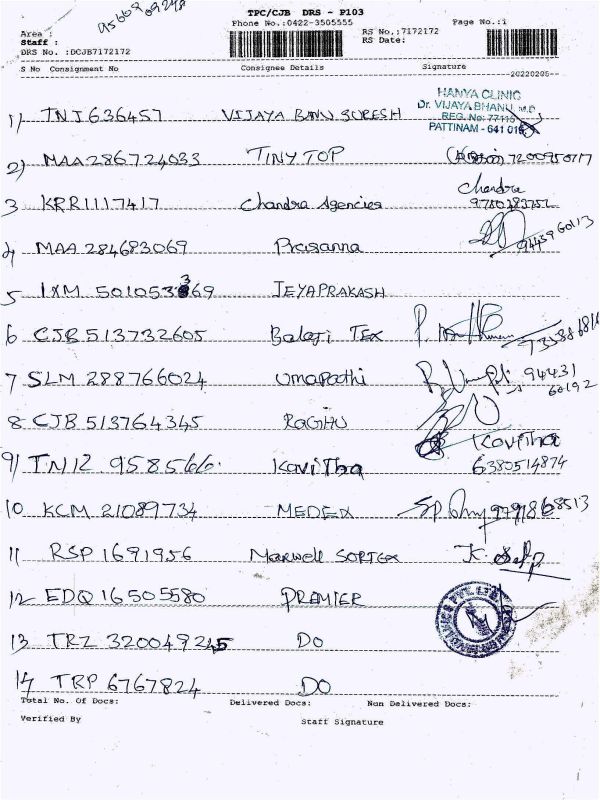 TPC/CJB DRS - P103
Phone No.:0422-3505555
Page No.:1
Area :
RS No.:7172172
Staff :
RS Date:
DRS No. :DCJB7172172
S No Consignment No Consignee Details Signature
20220205
HANYA CLINIC
Dr. VIJAYA BHANU M.D
REG. No: 77115
PATTINAM - 641 016
1) TNJ636457 VIJAYA BANU SURESH
2) MAA286724033 TINY TOP 7200950717
3 KRR1117417 Chandra Agencies Chandra
4 MAA 284683069 Prasanna 9443960113
5 IXM JEYAPRAKASH
6 CJB513732605 Balaji TEX
7 SLM 288766024 Umapathi 94431
60192
8 CJB 513764345 RAGHU
9) TN12 958566 Kavitha Kavitha
6380514874
10 KCM 21089734 MEDEX
11 RSP 1691956 Maxwell SORTEX
12 EDQ 16505580 PREMIER
13 TRZ 320049245 DO
14 TRP 6767824 DO
Total No. Of Docs: Delivered Docs: Non Delivered Docs:
Verified By Staff Signature